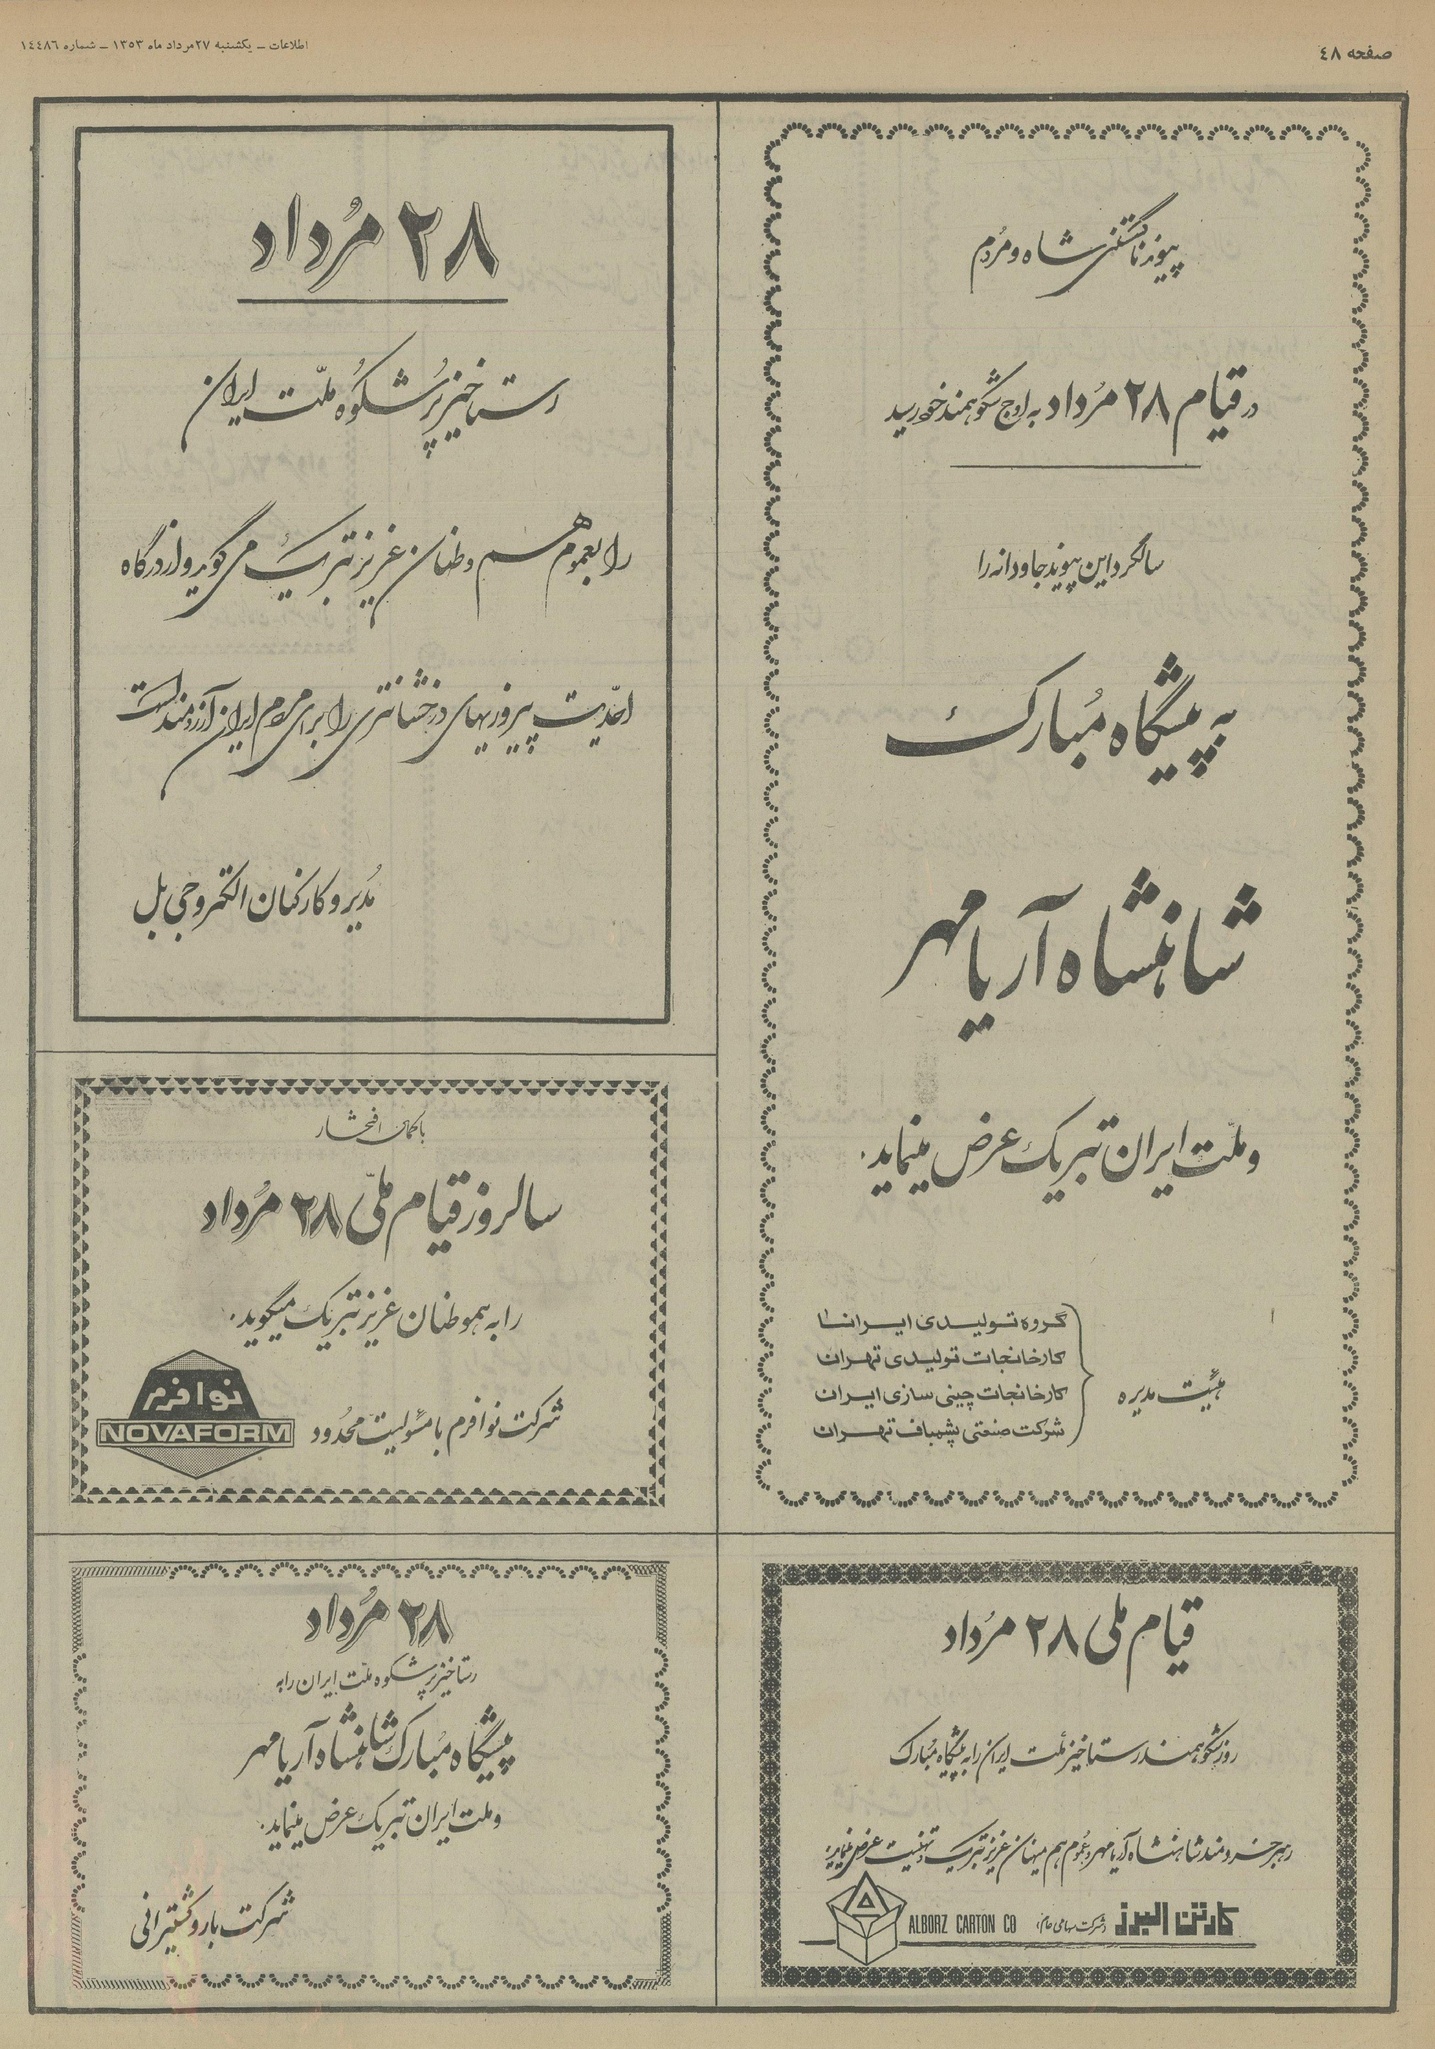 صفحه ٤٨
اطلاعات – یکشنبه ۲۷ مرداد ماه ۱۳۵۳ – شماره ١٤٤٨٦
پیوند ناگسستنی شاه و مردم
در قیام ۲۸ مُرداد به اوج شکوهمند خود رسید
سالگرد این پیوند جاودانه را
به پیشگاه مُبارک
شاهنشاه آریامهر
و ملّت ایران تبریک عرض مینماید.
هیئت مدیره
گروه تولیدی ایرانا
کارخانجات تولیدی تهران
کارخانجات چینی سازی ایران
شرکت صنعتی پشمباف تهران
۲۸ مُرداد
رستاخیز پُرشکُوه ملّت ایران
را بعموم هم وطنان عزیز تبریک می گوید و از درگاه
احدّیت پیروزیهای درخشانتری را برای مردم ایران آرزومند است
مُدیر و کارکنان الکتمروجی بل
با کمال افتخار
سالروز قیام ملّی ۲۸ مُرداد
را به هموطنان عزیز تبریک میگوید.
شرکت نوافرم با مسئولیت محدُود
نوافرم
NOVAFORM
قیام ملی ۲۸ مرُداد
روز شکوهمند رستاخیز ملت ایران را به پیشگاه مُبارک
رهبر خردمند شاهنشاه آریامهر و عُموم هم میهنان عزیز تبریک و تهنیت عرض مینماید.
کارتن البرز (شرکت سهامی خاص) ALBORZ CARTON CO
۲۸ مُرداد
رستاخیز پرشکوه ملّت ایران را به
پیشگاه مُبارک شاهنشاه آریامهر
و ملت ایران تبریک عرض مینماید.
شرکت بار و کشتیرانی